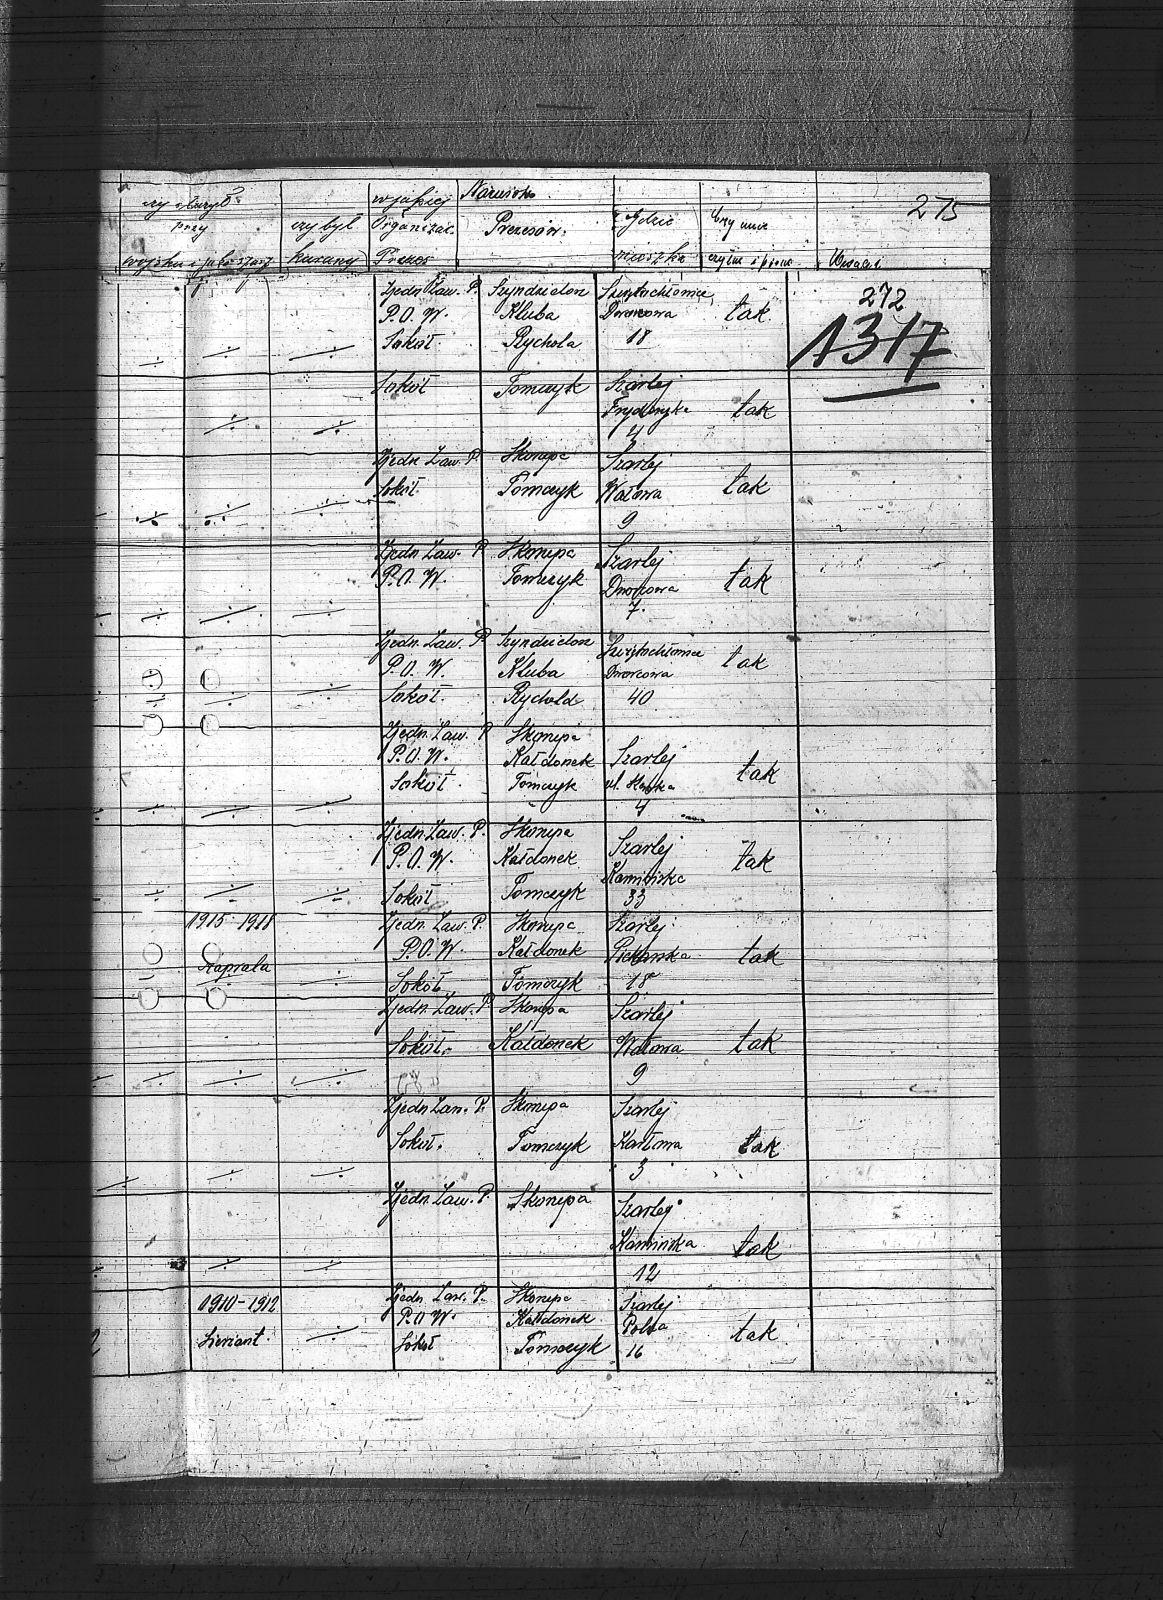 czy służył przy wojsku i jako szarż
czy był karany
w jakiej Organizac.
Nazwisko Prezesów.
Gdzie mieszka
Czy umie czytać i pisać
275
272
1317
Zjedn. Zaw. P. Szyndzielorz Świętochłowice
P.O.W. Kluba Dworcowa tak
Sokół Rychold 18
Sokół Tomczyk Szarlej
Fryderyka tak
4
Zjedn. Zaw. P. Skorupa Szarlej
Sokół. Tomczyk Wałowa tak
9
Zjedn. Zaw. P. Skorupa Szarlej
P.O.W. Tomczyk Dworcowa tak
7.
Zjedn. Zaw. P. Szyndzielorz Świętochłowice
P.O.W. Kluba Dworcowa tak
Sokół. Rychold 40
Zjedn. Zaw. P. Skorupa
P.O.W. Kałdonek Szarlej
Sokół. Tomczyk ul. tak
4
Zjedn. Zaw. P. Skorupa Szarlej
P.O.W. Kałdonek Kamińska tak
Sokół Tomczyk 33
1915-1918 Zjedn. Zaw. P. Skorupa Szarlej
Kaprala P.O.W. Kałdonek Piekarska tak
Sokół Tomczyk 18
Zjedn. Zaw. P. Skorupa Szarlej
Sokół. Kałdonek Wałowa tak
9
Zjedn. Zaw. P. Skorupa Szarlej
Sokół. Tomczyk Karłowa tak
3
Zjedn. Zaw. P. Skorupa Szarlej
Kamińska tak
12
1910-1912 Zjedn. Zaw. P. Skorupa Szarlej
P.O.W. Kałdonek Polna
Sierżant. Sokół Tomczyk 16 tak